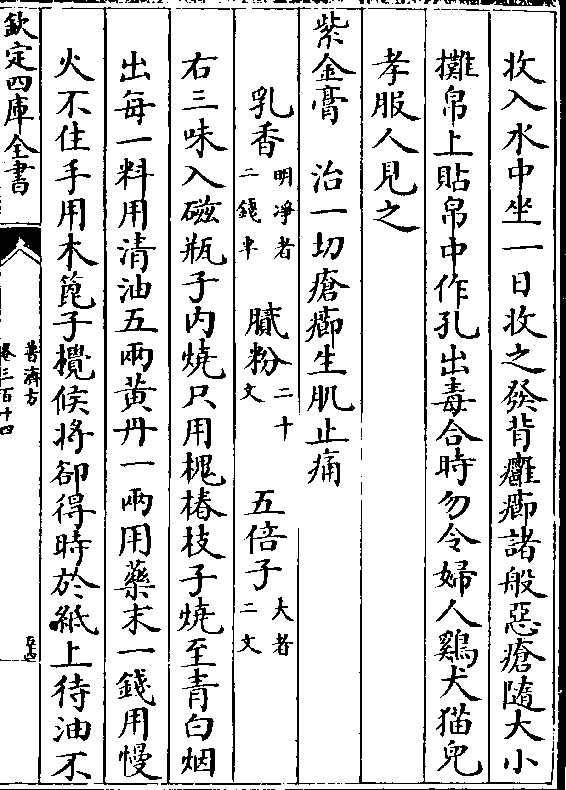 收入水中坐一日收之發背癰癤諸般惡瘡隨大小
攤帛上貼帛中作孔出毒合時勿令婦人鷄犬猫兒
孝服人見之
紫金膏　治一切瘡癤生肌止痛
乳香明凈者二錢半　膩粉二十文　五倍子大者二文
右三味入磁瓶子内燒只用槐椿枝子燒至青白烟
出每一料用清油五兩黄丹一兩用藥末一錢用慢
火不住手用木篦子攪候將卻得時於紙上待油不
欽定四庫全書
普濟方
卷三百十四